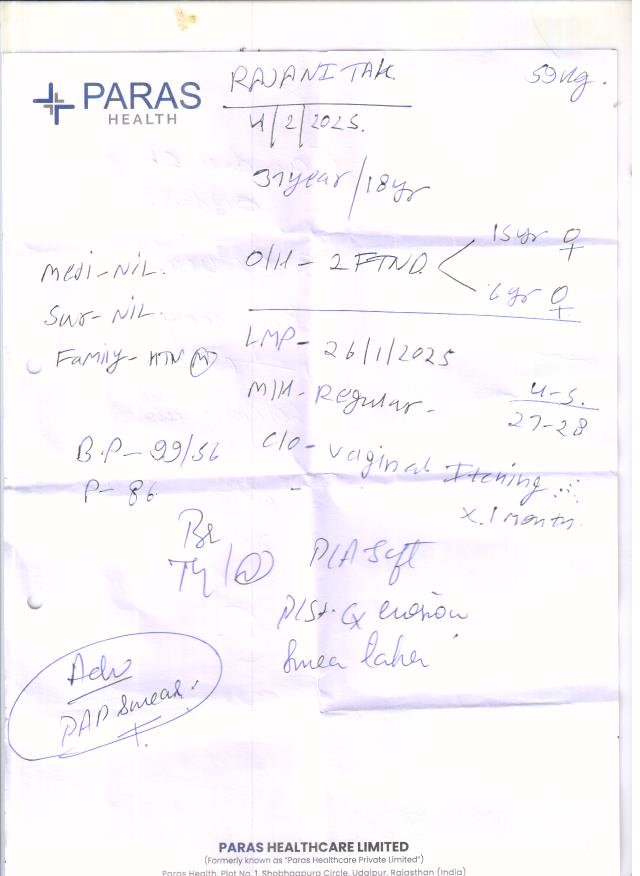 PARAS
HEALTH
RAJANI TAK
59 kg.
4/2/2025.
37year/18yr
Medi-NIL.
O/H- 2 FTND
15yr ♀
6yr ♀
Sur-NIL.
Family- HTN (M)
LMP- 26/1/2025
M/H- Regular-
4-5.
27-28
B.P-99/56
C/O- Vaginal Itching
P- 86
x. 1 month
Br
Th
P/A Soft
P/S+. Cx erosion
Smea taken
Adv
PAP Smear.
PARAS HEALTHCARE LIMITED
(Formerly known as "Paras Healthcare Private Limited")
Paras Health, Plot No. 1, Shobhagpura Circle, Udaipur, Rajasthan (India)